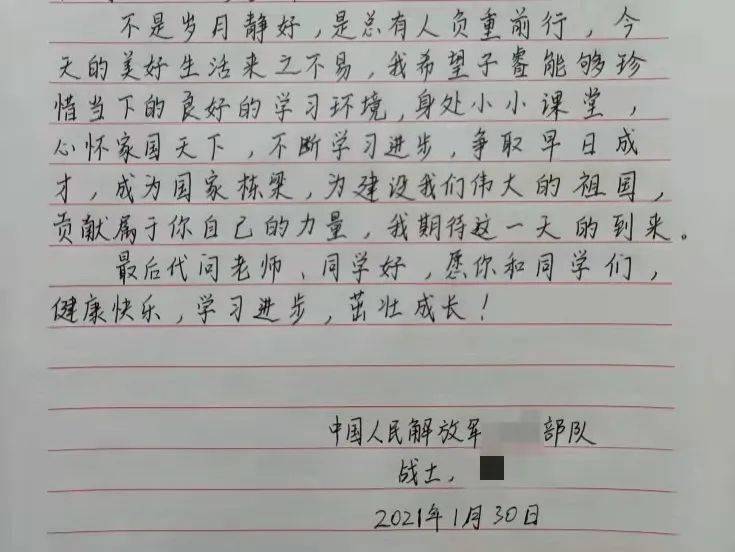 不是岁月静好，是总有人负重前行，今
天的美好生活来之不易，我希望子睿能够珍
惜当下的良好的学习环境，身处小小课堂，
心怀家国天下，不断学习进步，争取早日成
才，成为国家栋梁，为建设我们伟大的祖国，
贡献属于你自己的力量，我期待这一天的到来。
最后代问老师、同学好，愿你和同学们，
健康快乐，学习进步，茁壮成长！
中国人民解放军 部队
战士，
2021年1月30日